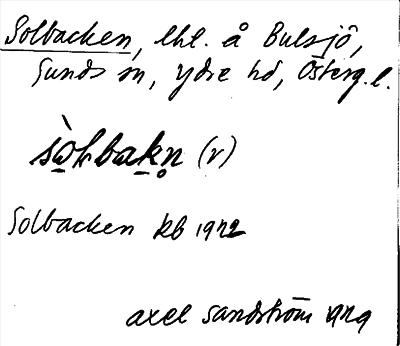 Solbacken, lht. å Bulsjö,
Sunds sn, Ydre hd, Österg. l.
sò̱lbaḵn̥ (r)
Solbacken kb 1942
Axel Sandström 1929